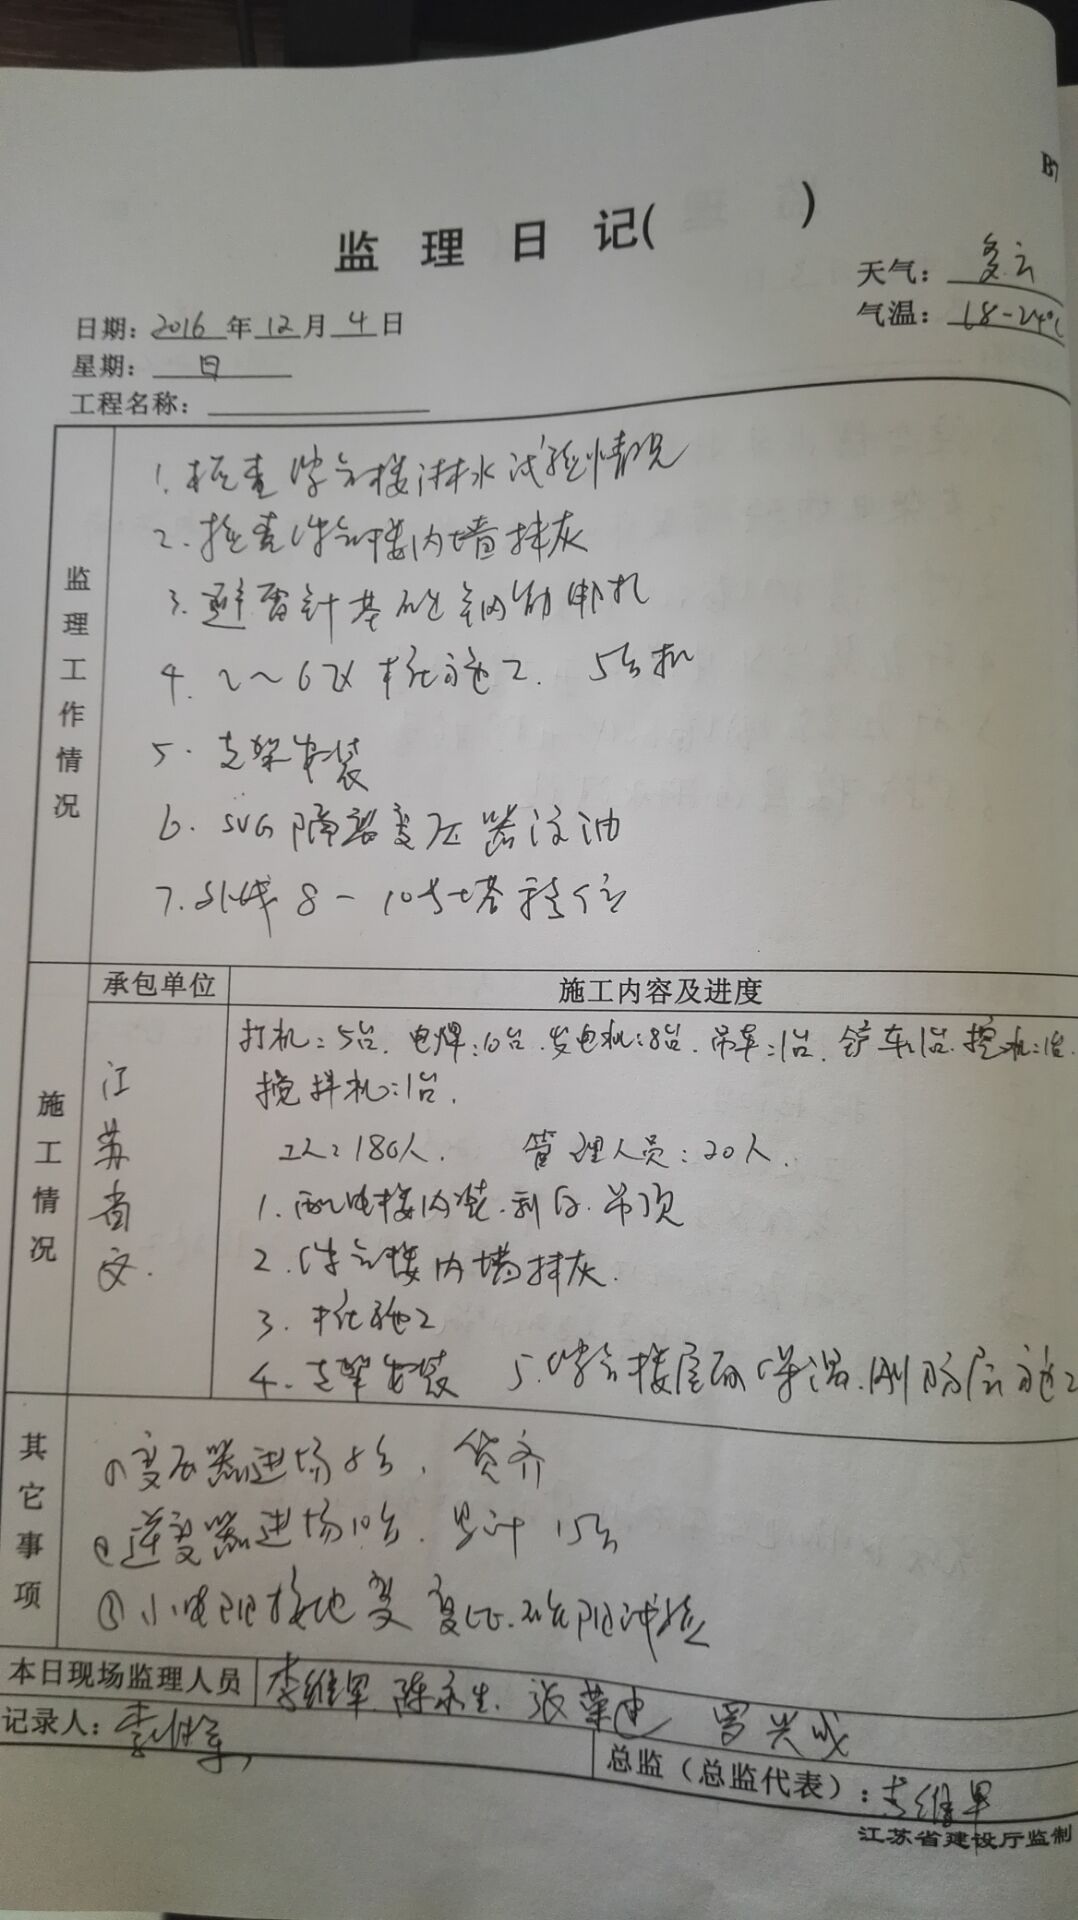 监 理 日 记( )
天气：多云
气温：18-24℃
日期：2016年12月4日
星期：日
工程名称：
监理工作情况
1.检查综合楼淋水试验情况
2.检查综合楼内墙抹灰
3.避雷针基础钢筋绑扎
4.2～6区桩施工. 5台机
5.支架安装
6.SVG隔离变压器注油
7.外线8-10号塔
承包单位
施工内容及进度
施工情况
江苏省
打机:5台.电焊:10台.发电机:8台.吊车:1台.铲车:1台.挖机:1台
搅拌机:1台.
工人:180人. 管理人员:20人.
1.配电楼内装.刮白.吊顶
2.综合楼内墙抹灰.
3.桩施工
4.支架安装 5.综合楼屋面保温.刚防层施工
其它事项
①变压器进场8台.货齐
②逆变器进场10台.累计15台
③小电阻接地变
本日现场监理人员 李维军.陈永生.张荣
记录人：李维军
总监（总监代表）：李维军
江苏省建设厅监制